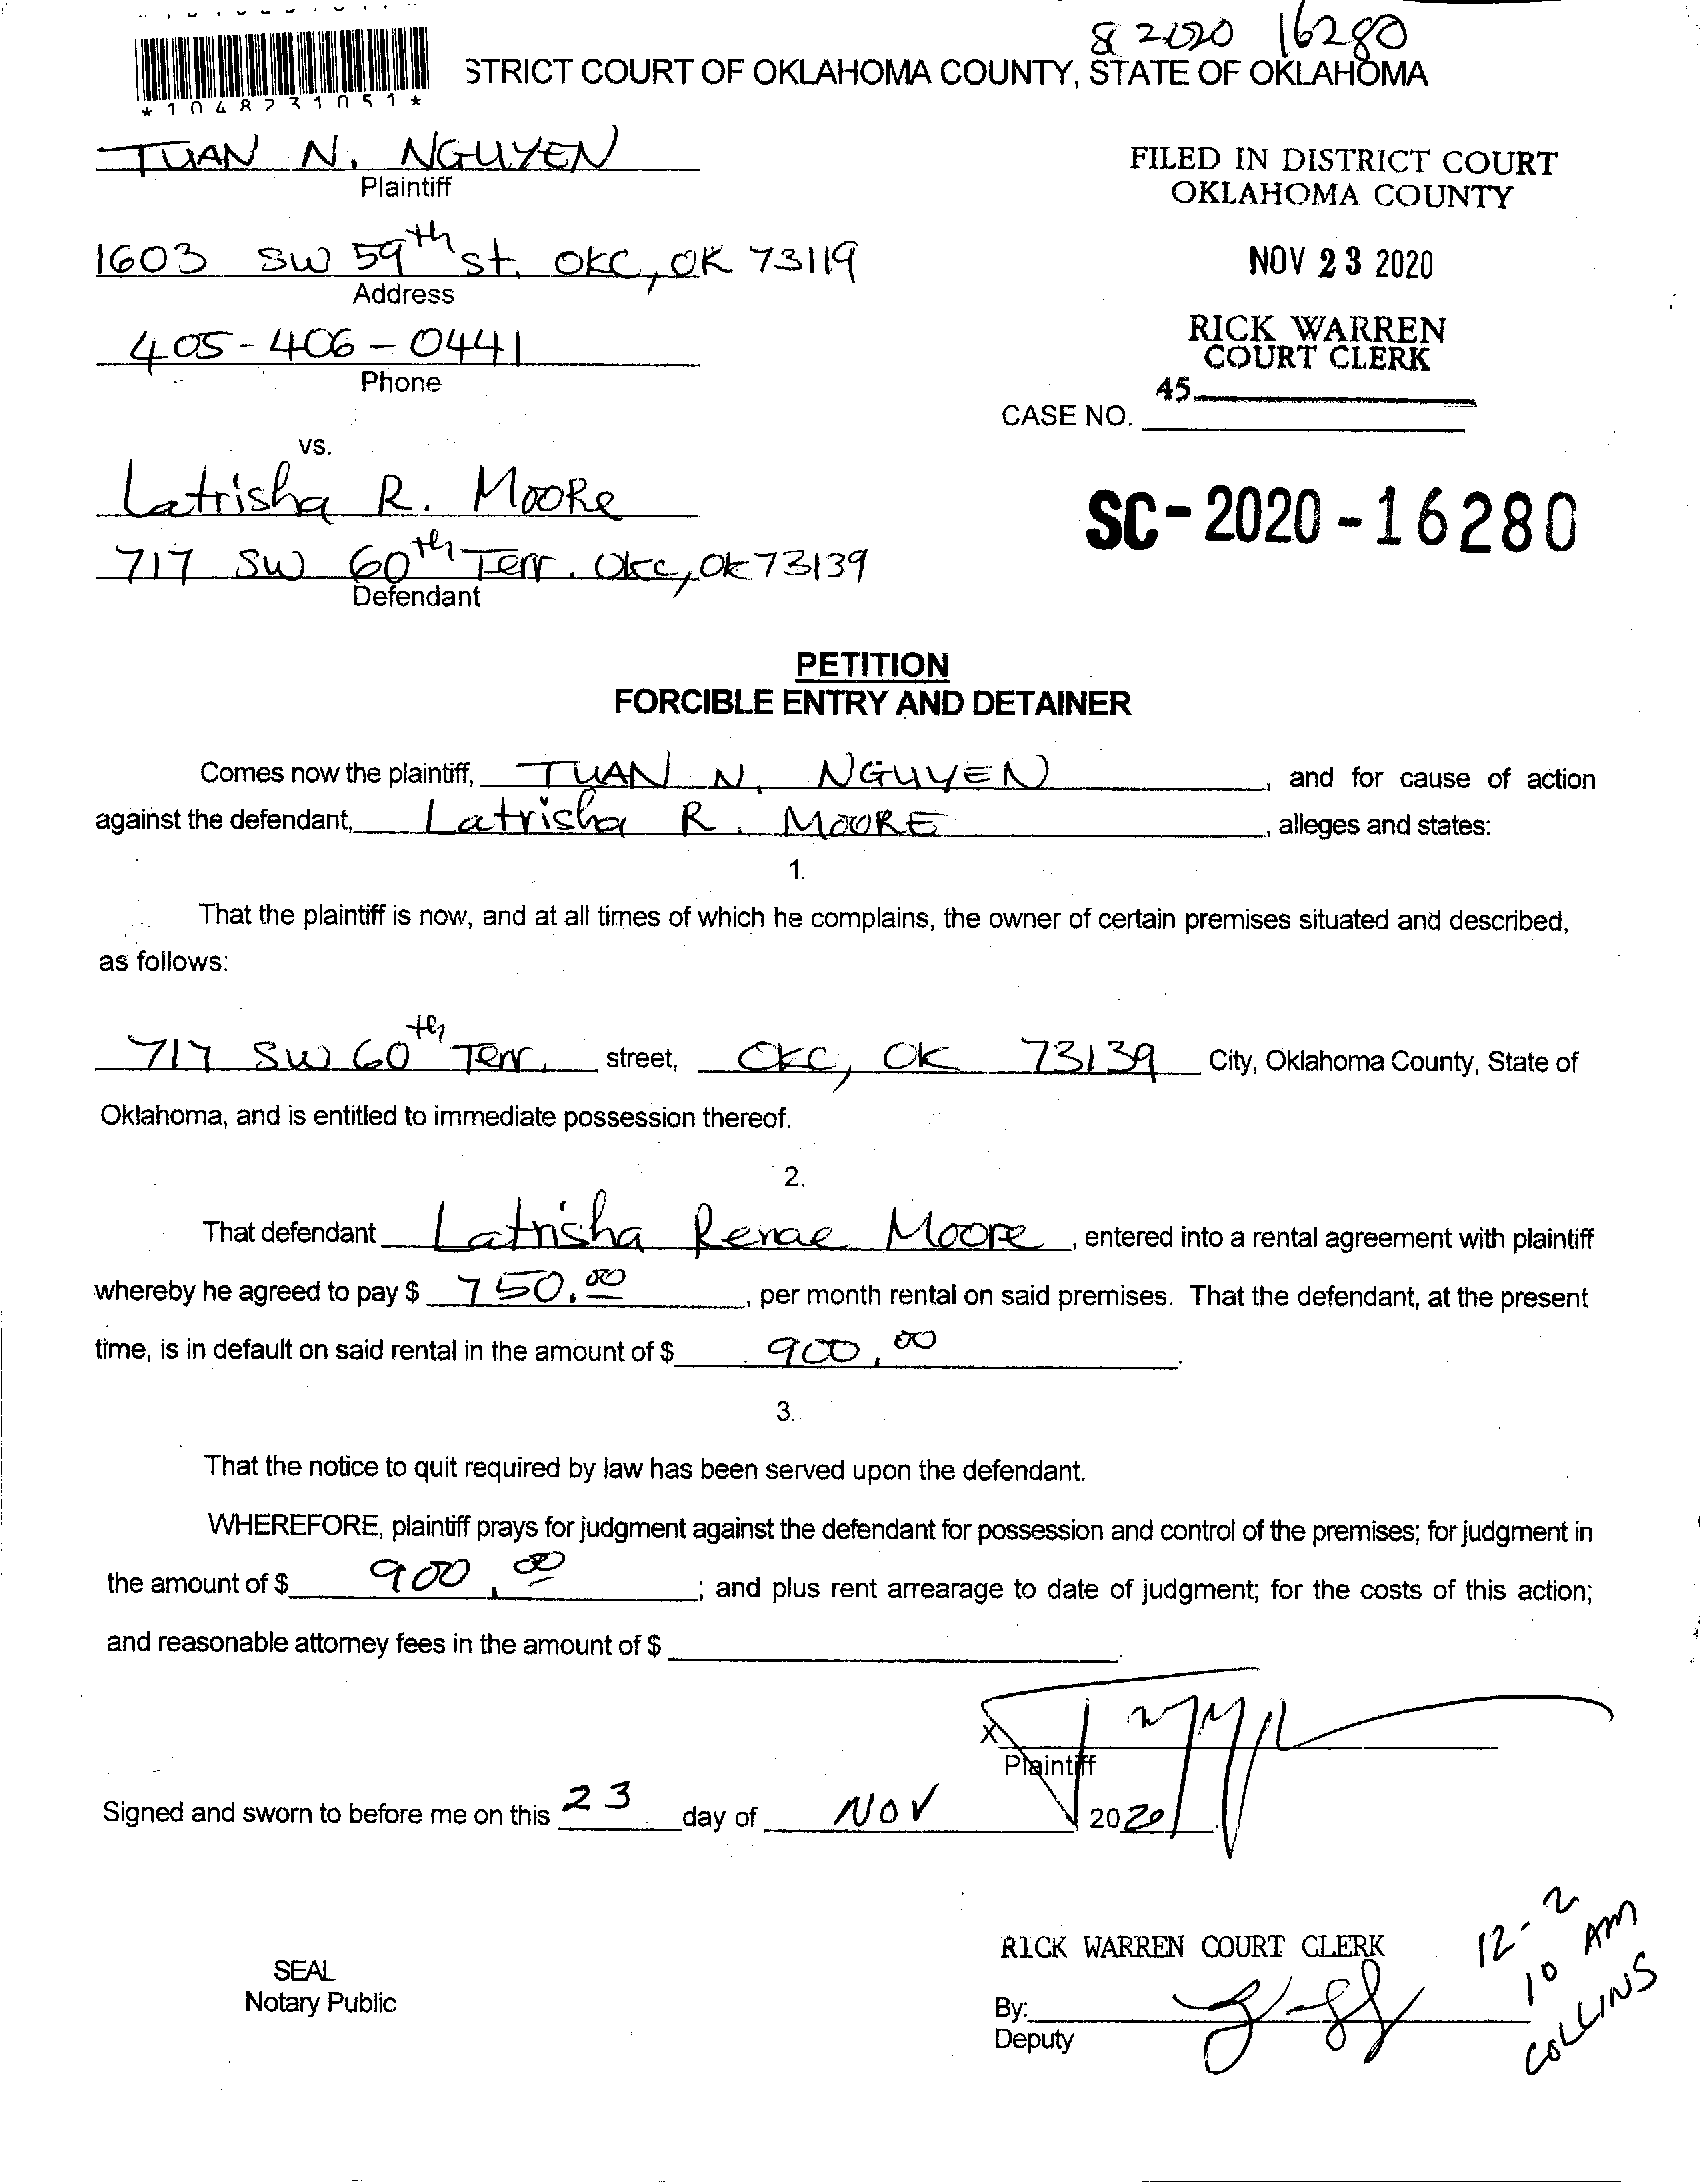 8 2020 16280
STRICT COURT OF OKLAHOMA COUNTY, STATE OF OKLAHOMA
*1048231051*
TUAN N. NGUYEN
Plaintiff
FILED IN DISTRICT COURT
OKLAHOMA COUNTY
1603 SW 59th st. OKC, OK 73119
Address
NOV 23 2020
405-406-0441
Phone
RICK WARREN
COURT CLERK
45
CASE NO.
vs.
Latrisha R. Moore
717 SW 60th Terr. Okc, Ok 73139
Defendant
SC-2020-16280
PETITION
FORCIBLE ENTRY AND DETAINER
Comes now the plaintiff, TUAN N. NGUYEN, and for cause of action
against the defendant, Latrisha R. MOORE, alleges and states:
1.
That the plaintiff is now, and at all times of which he complains, the owner of certain premises situated and described,
as follows:
717 SW 60th Terr. street, OKC, OK 73139 City, Oklahoma County, State of
Oklahoma, and is entitled to immediate possession thereof.
2.
That defendant Latrisha Renae Moore, entered into a rental agreement with plaintiff
whereby he agreed to pay $ 750.00, per month rental on said premises. That the defendant, at the present
time, is in default on said rental in the amount of $ 900.00.
3.
That the notice to quit required by law has been served upon the defendant.
WHEREFORE, plaintiff prays for judgment against the defendant for possession and control of the premises; for judgment in
the amount of $ 900.00; and plus rent arrearage to date of judgment; for the costs of this action;
and reasonable attorney fees in the amount of $
X
Plaintiff
Signed and sworn to before me on this 23 day of NOV 2020.
RICK WARREN COURT CLERK
SEAL
Notary Public
By:
Deputy
12-2
10 AM
COLLINS